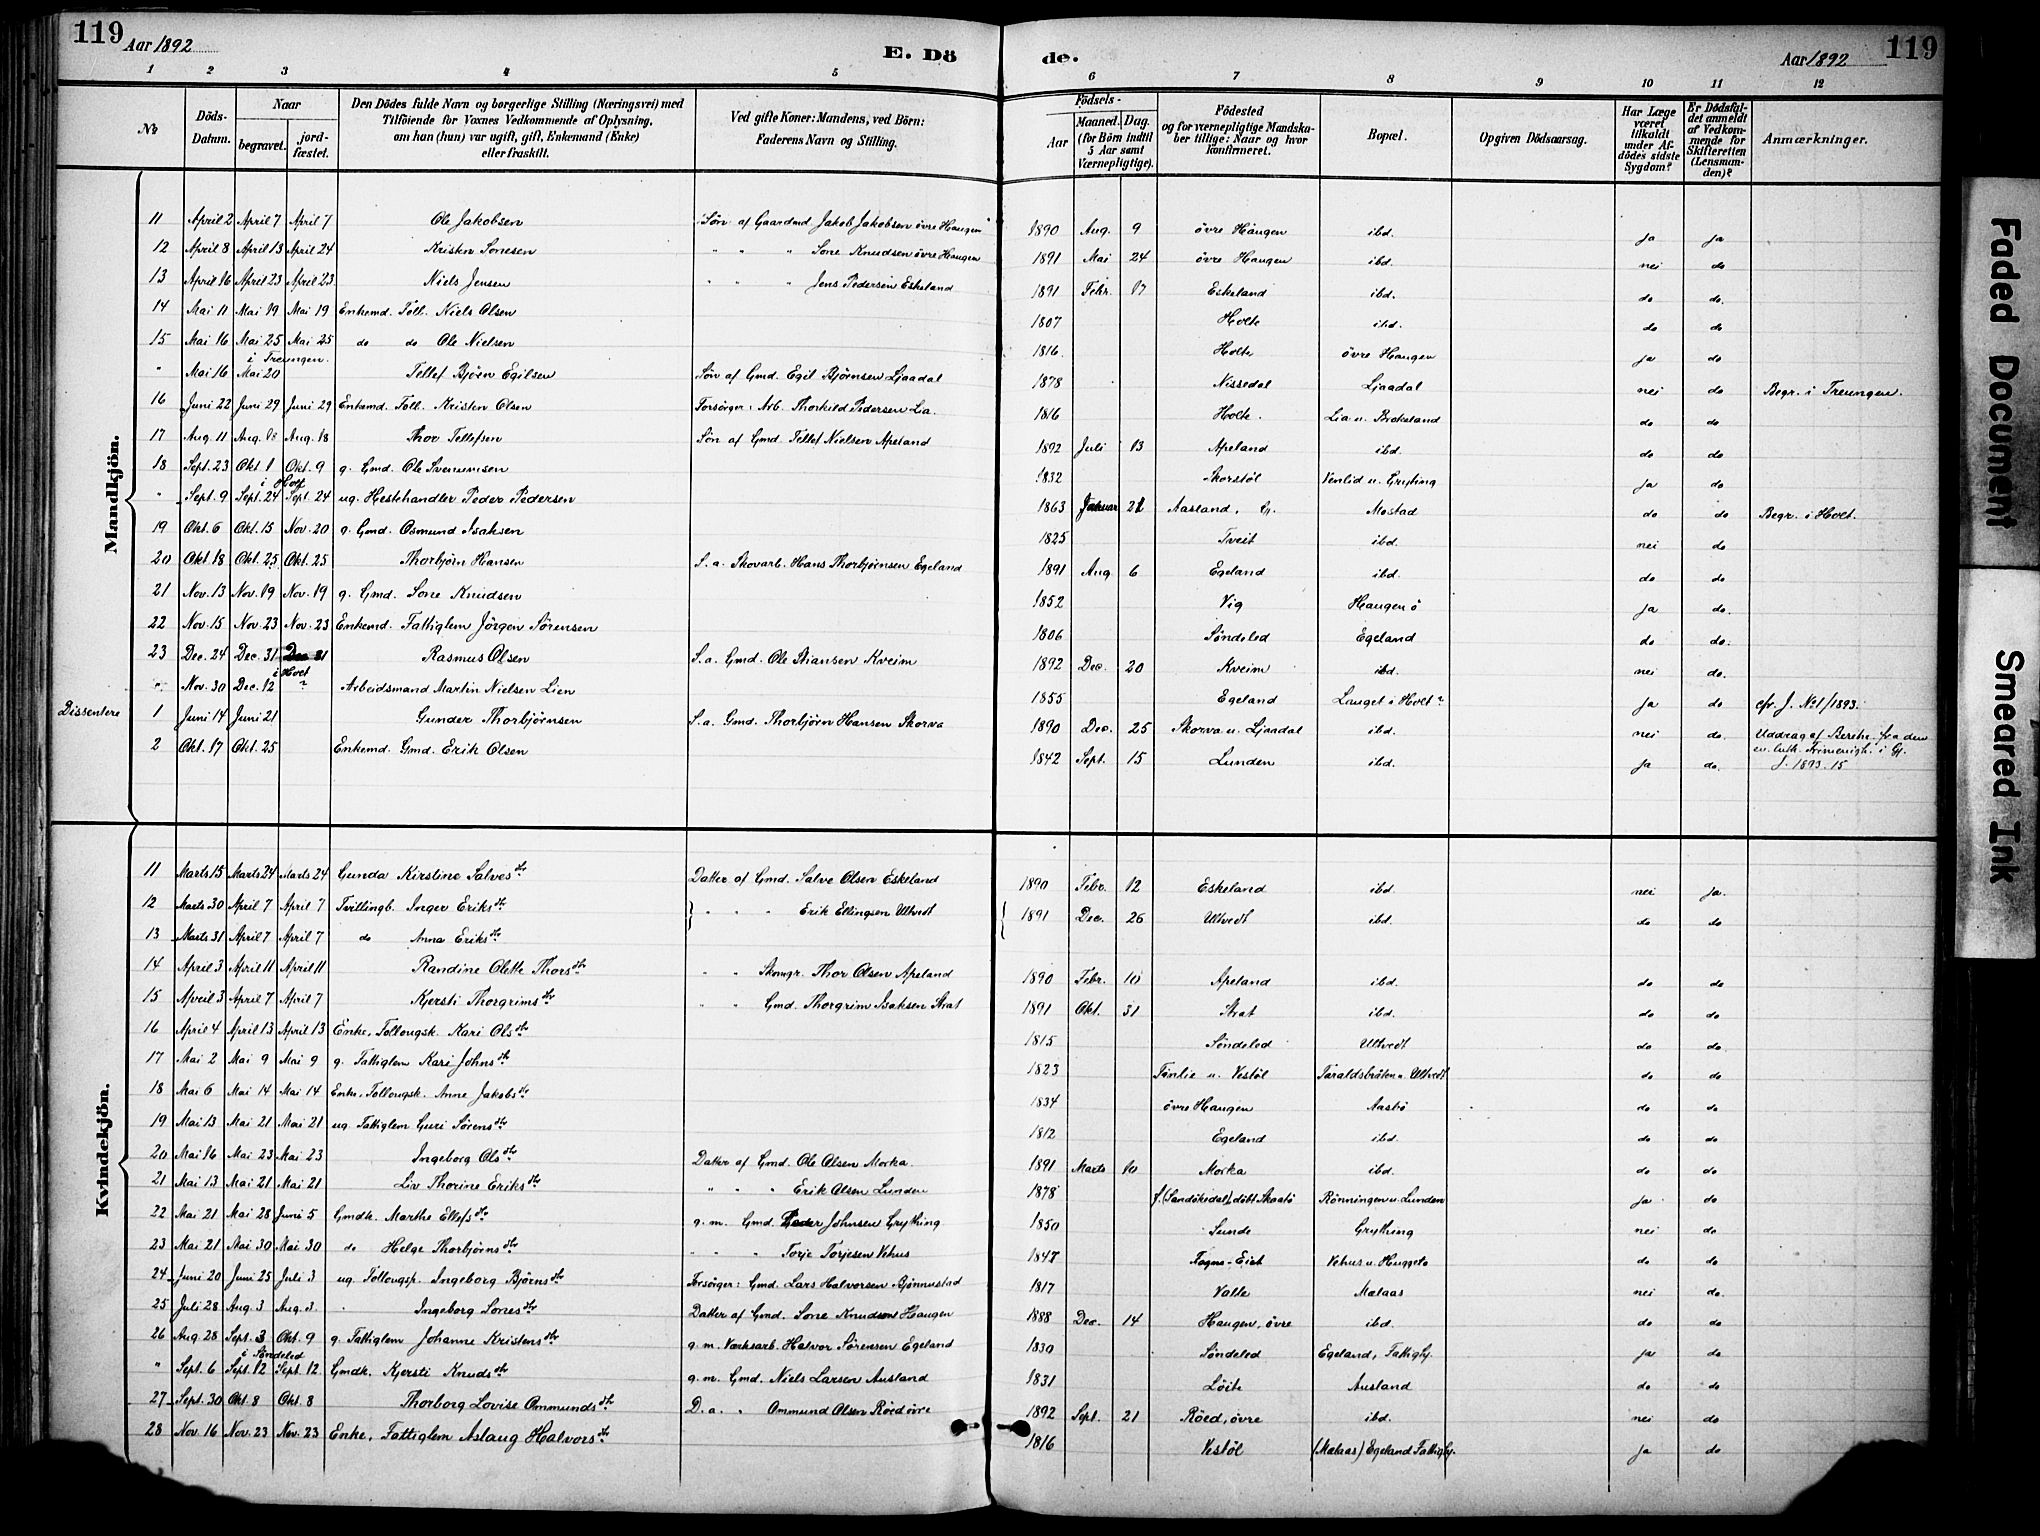 119 Aar 1892 E. Dö de. Aar 1892 119
1 2 3 4 5 6 7 8 9 10 11 12
No
Döds-Datum.
Naar
begravet.
jord-fæstet.
Den Dödes fulde Navn og borgerlige Stilling (Næringsvei) med
Tilföiende for Voxnes Vedkommende af Oplysning,
om han (hun) var ugift, gift, Enkemand (Enke)
eller fraskilt.
Ved gifte Koner: Mandens, ved Börn:
Faderens Navn og Stilling.
Födsels-
Aar
Maaned. Dag.
(for Börn indtil
5 Aar samt
Værnepligtige).
Födested
og for værnepligtige Mandska-
ber tillige: Naar og hvor
konfirmeret.
Bopæl.
Opgiven Dödsaarsag.
Har Læge
været
tilkaldt
under Af-
dödes sidste
Sygdom?
Er Dödsfal-
det anmeldt
af Vedkom-
mende for
Skifteretten
(Lensman-
den)?
Anmærkninger.
Mandkjön.
11 April 2 April 7 April 7 Ole Jakobsen Søn af Gaardmd Jakob Jakobsen øvre Haugen 1890 Aug. 9 øvre Haugen ibd. ja ja
12 April 8 April 13 April 24 Kristen Sonesen " " " Sone Knudsen øvre Haugen 1891 Mai 24 øvre Haugen ibd. nei do
13 April 16 April 23 April 23 Niels Jensen " " " Jens Pedersen Eskeland 1891 Febr. 17 Eskeland ibd. do do.
14 Mai 11 Mai 19 Mai 19 Enkemd. Foll. Niels Olsen 1807 Holte ibd. do do
15 Mai 16 Mai 25 Mai 25 do do Ole Nielsen 1816 Holte øvre Haugen ja do
i Treungen.
" Mai 16 Mai 20 Tellef Bjørn Egilsen Søn af Gmd. Egil Bjørnsen Ljaadal 1878 Nissedal Ljaadal nei do Begr. i Treungen.
16 Juni 22 Juni 29 Juni 29 Enkemd. Foll. Kristen Olsen Forsørger: Arb. Thorkild Pedersen Lia. 1816 Holte. Lia u. Brokeland do do
17 Aug. 11 Aug. 18 Aug. 18 Thor Tellefsen Søn af Gmd. Tellef Nielsen Apeland 1892 Juli 13 Apeland ibd. do do
18 Sept. 23 Okt. 1 Okt. 9 g. Gmd. Ole Svenumsen 1832 Skorstøl Venlid u. Gryting ja do
i Holt
" Sept. 9 Sept. 24 Sept. 24 ug. Hestehandler Peder Pedersen 1863 Januar 21 Aasland, Gj. Mostad do do Begr. i Holt.
19 Okt. 6 Okt. 15 Nov. 20 g. Gmd. Osmund Isaksen 1825 Tveit ibd. nei do
20 Okt 18 Okt. 25 Okt. 25 Thorbjørn Hansen S. a. Skovarb. Hans Thorbjørnsen Egeland 1891 Aug 6 Egeland ibd. do do
21 Nov. 13 Nov. 19 Nov. 19 g. Gmd. Sone Knudsen 1852 Vig Haugen ø ja do.
22 Nov. 15 Nov. 23 Nov. 23 Enkemd. Fattiglem Jörgen Sørensen 1806 Søndeled Egeland do. do.
23 Dec. 24 Dec. 31 Dec 31 Rasmus Olsen S. a. Gmd. Ole Stiansen Kveim 1892 Dec. 20 Kveim ibd. nei do.
i Holt
" Nov. 30 Dec. 12 ? Arbeidsmand Martin Nielsen Lien 1855 Egeland Lauget i Holt? ja do cfr. J. No 1/1893.
Dissentere 1 Juni 14 Juni 21 Gunder Thorbjørnsen S. a. Gmd. Thorbjørn Hansen Skorva 1890 Dec. 25 Skorva u. Ljaadal ibd. nei do. Uddrag af Beretn. fra den
2 Okt. 17 Okt. 25 Enkemd. Gmd. Erik Olsen 1842 Sept. 15 Lunden ibd. ja do. ev. luth. Frimenigh. i Gj.
J. 1893. 15
Kvindekjön.
11 Marts 15 Marts 24 Marts 24 Gunda Kirstine Salvesdtr Datter af Gmd. Salve Olsen Eskeland 1890 Febr. 12 Eskeland ibd. nei ja.
12 Marts 30 April 7 April 7 Tvillingb. Inger Eriksdtr " " " Erik Ellingsen Ultvedt 1891 Dec. 26 Ultvedt ibd. do do
13 Marts 31 April 7 April 7 do Anna Eriksdtr
14 April 3 April 11 April 11 Randine Olette Thorsdtr " " Skomgr. Thor Olsen Apeland 1890 Febr. 10 Apeland ibd. do do
15 April 3 April 7 April 7 Kjersti Thorgrimsdtr " " Gmd. Thorgrim Isaksen Strat 1891 Okt. 31 Strat ibd. do do
16 April 4 April 13 April 13 Enke, Follougsk. Kari Olsdtr 1815 Søndeled Ultvedt do do
17 Mai 2 Mai 9 Mai 9 g. Fattiglem Kari Johnsdtr 1823 Tànlie u. Vestøl Taraldsbråten u. Ultvedt do do
18 Mai 6 Mai 14 Mai 14 Enke, Follougsk. Anne Jakobsdtr 1834 øvre Haugen Aasbø do do
19 Mai 13 Mai 21 Mai 21 ug Fattiglem Guri Sørensdtr 1812 Egeland ibd. do do
20 Mai 16 Mai 23 Mai 23 Ingeborg Olsdtr Datter af Gmd. Ole Olsen Morka. 1891 Marts 10 Morka ibd. do do
21 Mai 13 Mai 21 Mai 21 Liv Thorine Eriksdtr " " " Erik Olsen Lunden 1878 f. (Sandøkedal), døbt Skaatø Rönningen u. Lunden ja do
22 Mai 21 Mai 28 Juni 5 Gmdk. Marthe Ellefsdtr g. m. Gmd. Peder Johnsen Grything 1850 Sunde Grything nei do
23 Mai 21 Mai 30 Mai 30 do Helge Thorbjørnsdtr " " " Torje Torjesen Vehus 1847 Togne-Eist Vehus u. Huggeto do do
24 Juni 20 Juni 25 Juli 3 ug. Follougsp. Ingeborg Bjørnsdtr Forsörger: Gmd. Lars Halvorsen Bjønnustad 1817 Valle Molaas nei do.
25 Juli 28 Aug. 3 Aug. 3 Ingeborg Sonesdtr Datter af Gmd. Sone Knudsen Haugen 1888 Dec. 14 Haugen, øvre ibd. do do
26 Aug. 28 Sept. 3 Okt. 9 g. Fattiglem Johanne Kristensdtr g. m. Værksarb. Halvor Sörensen Egeland 1830 Søndeled Egeland, Fattigg. ja do
i Søndeled
" Sept. 6 Sept. 12 Sept. 12 Gmdk. Kjersti Knudsdtr g. m. Gmd. Niels Larsen Ausland 1831 Löite Ausland do do
27 Sept. 30 Okt. 8 Okt. 8 Thorborg Lovise Ommundsdtr D. a. " Ommund Olsen Röed øvre 1892 Sept. 21 Röed, øvre ibd. nei do
28 Nov. 16 Nov. 23 Nov. 23 Enke, Fattiglem Aslaug Halvorsdtr 1816 Vestøl (Molaas) Egeland Fattigg. ja do
Faded Document
Smeared Ink